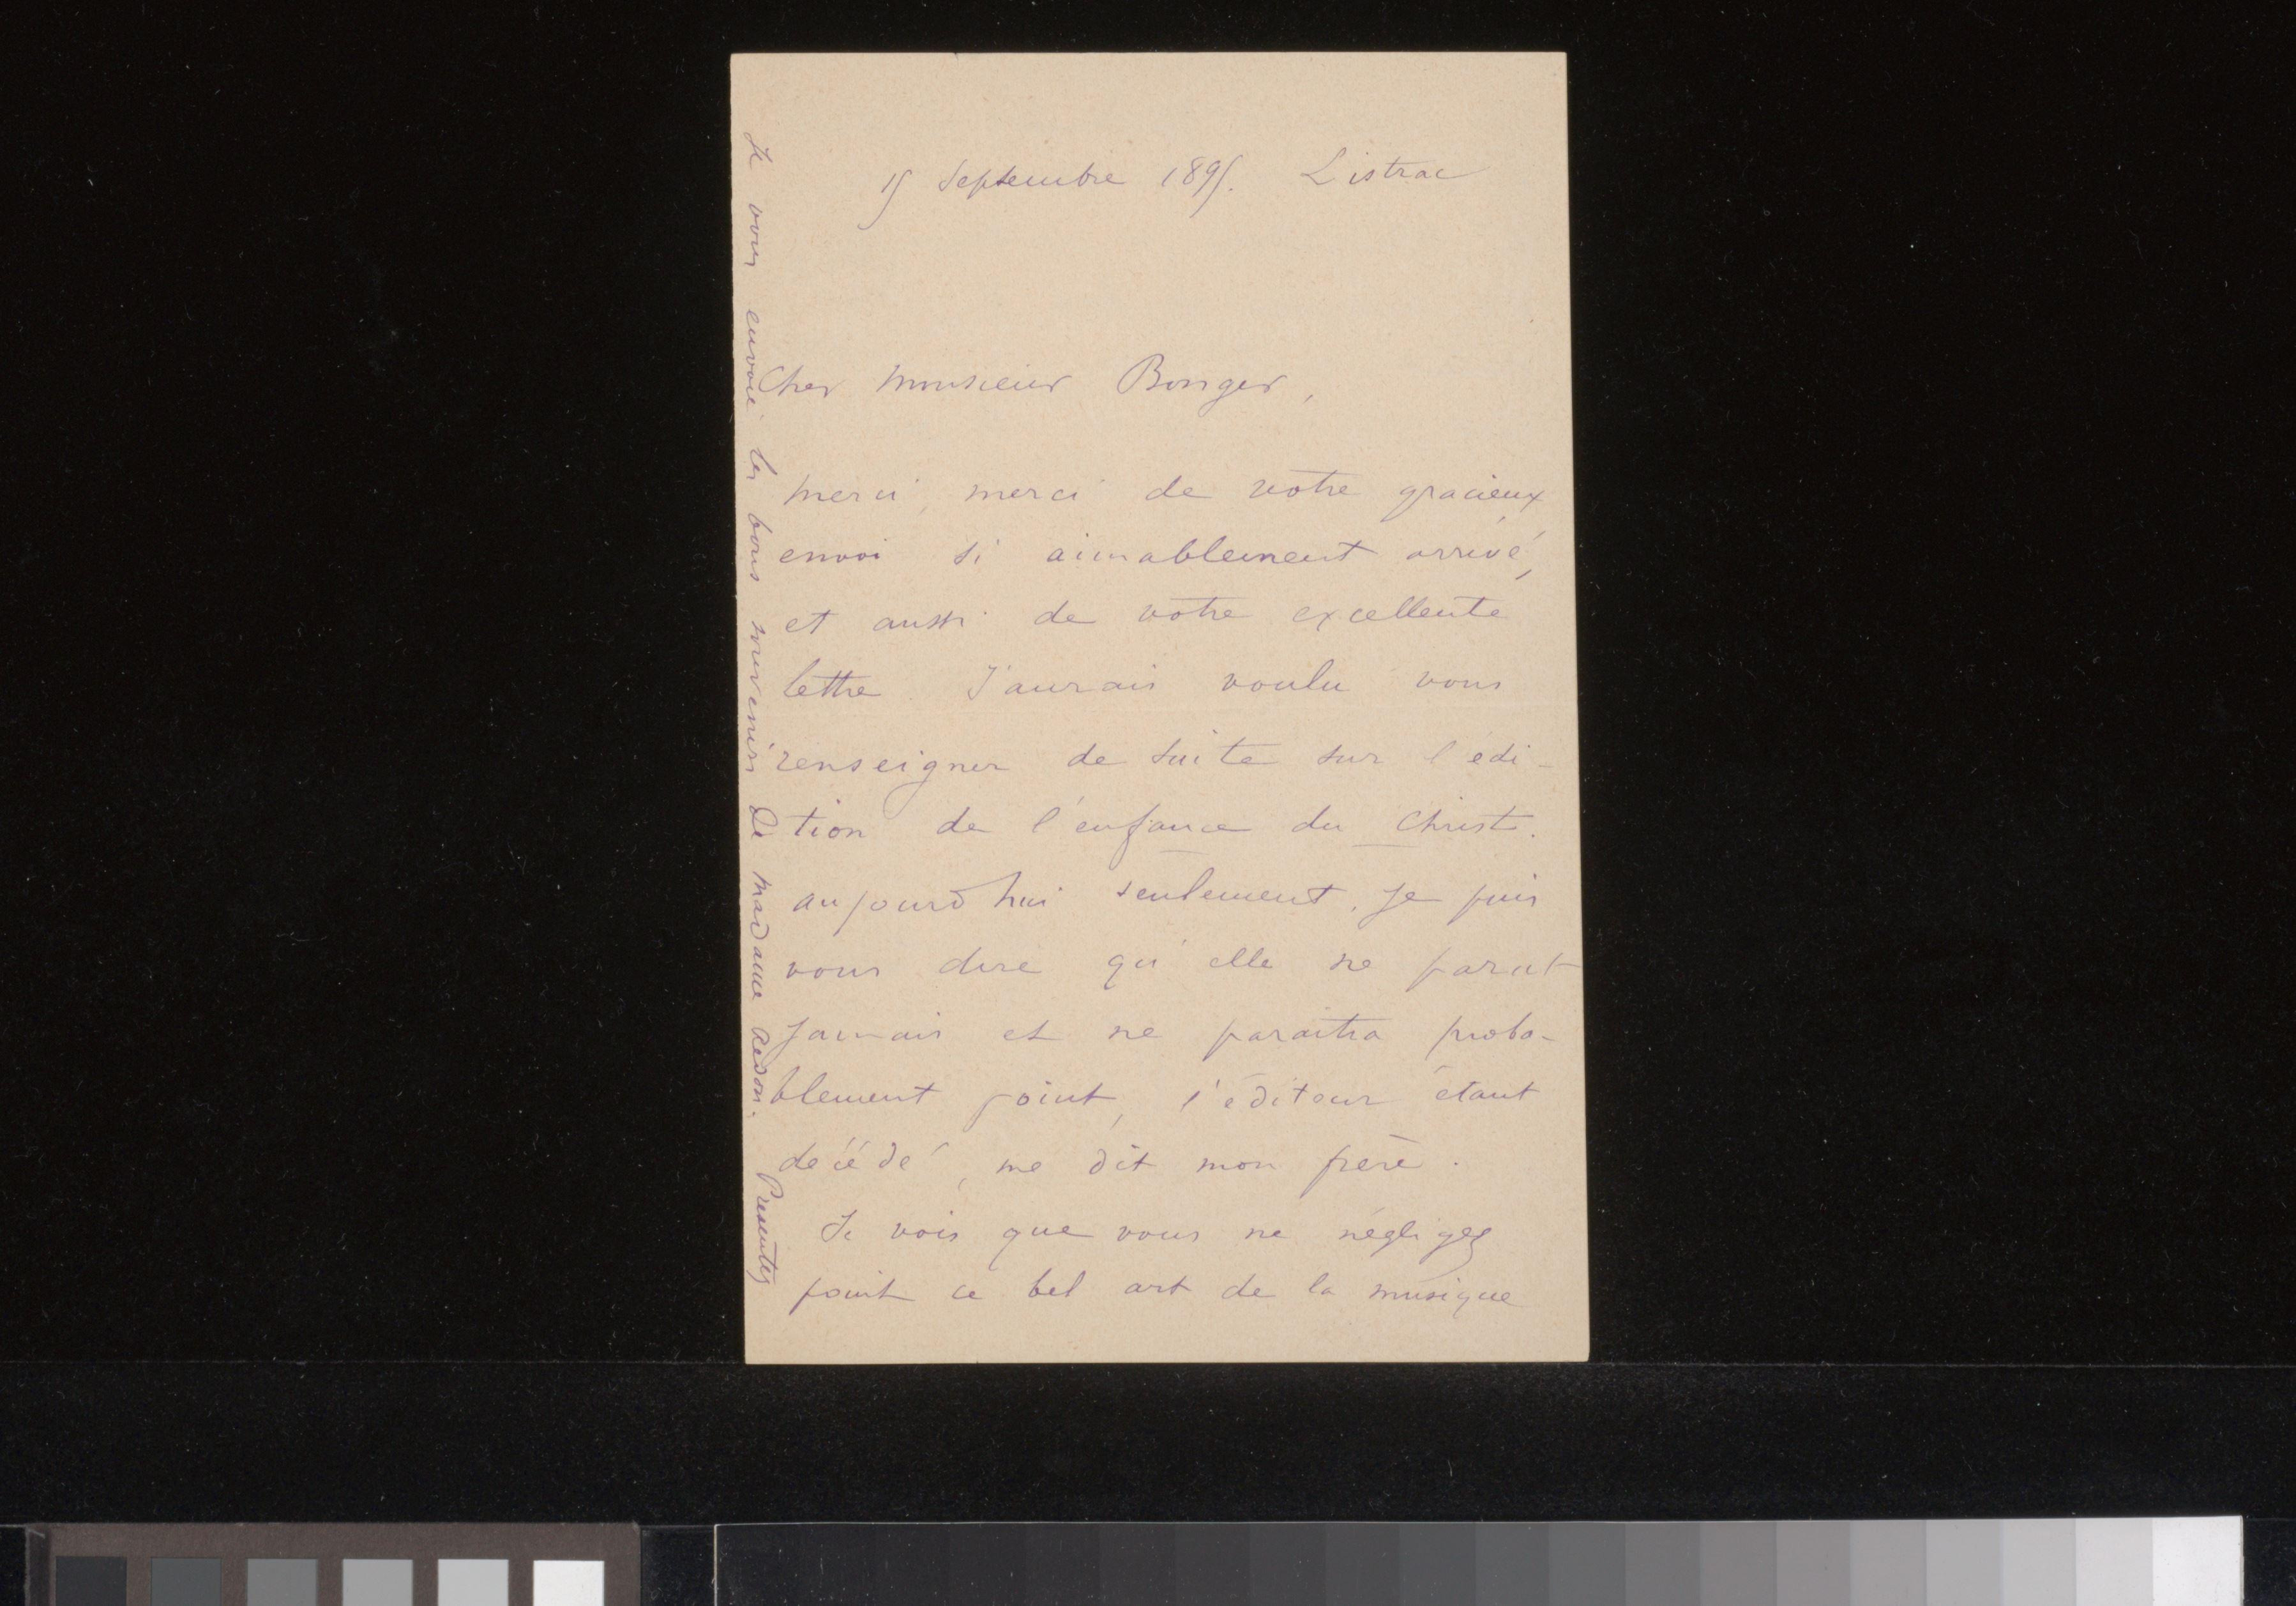 15 Septembre 1895. Listrac
Cher Monsieur Bonger,
Merci, merci de votre gracieux
envoi si aimablement arrivé,
et aussi de votre excellente
lettre. J'aurais voulu vous
renseigner de suite sur l'édi-
tion de l'enfance du Christ.
aujourd'hui seulement, je puis
vous dire qu'elle ne parut
jamais et ne paraitra proba-
blement point, l'éditeur étant
décédé, me dit mon frère.
Je vois que vous ne négligez
point ce bel art de la musique
Je vous envoie les bons souvenirs de Madame Redon. Présentez